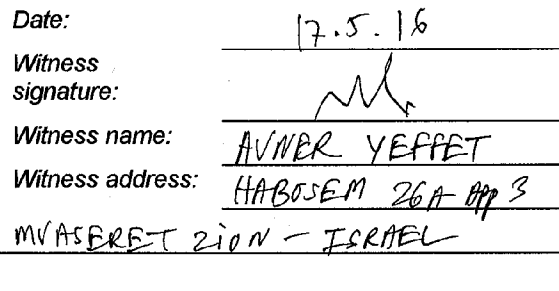 Date: 17.5.16
Witness
signature:
Witness name: AVNER YEFFET
Witness address: HABOSEM 26A App 3
MVASERET ZION - ISRAEL